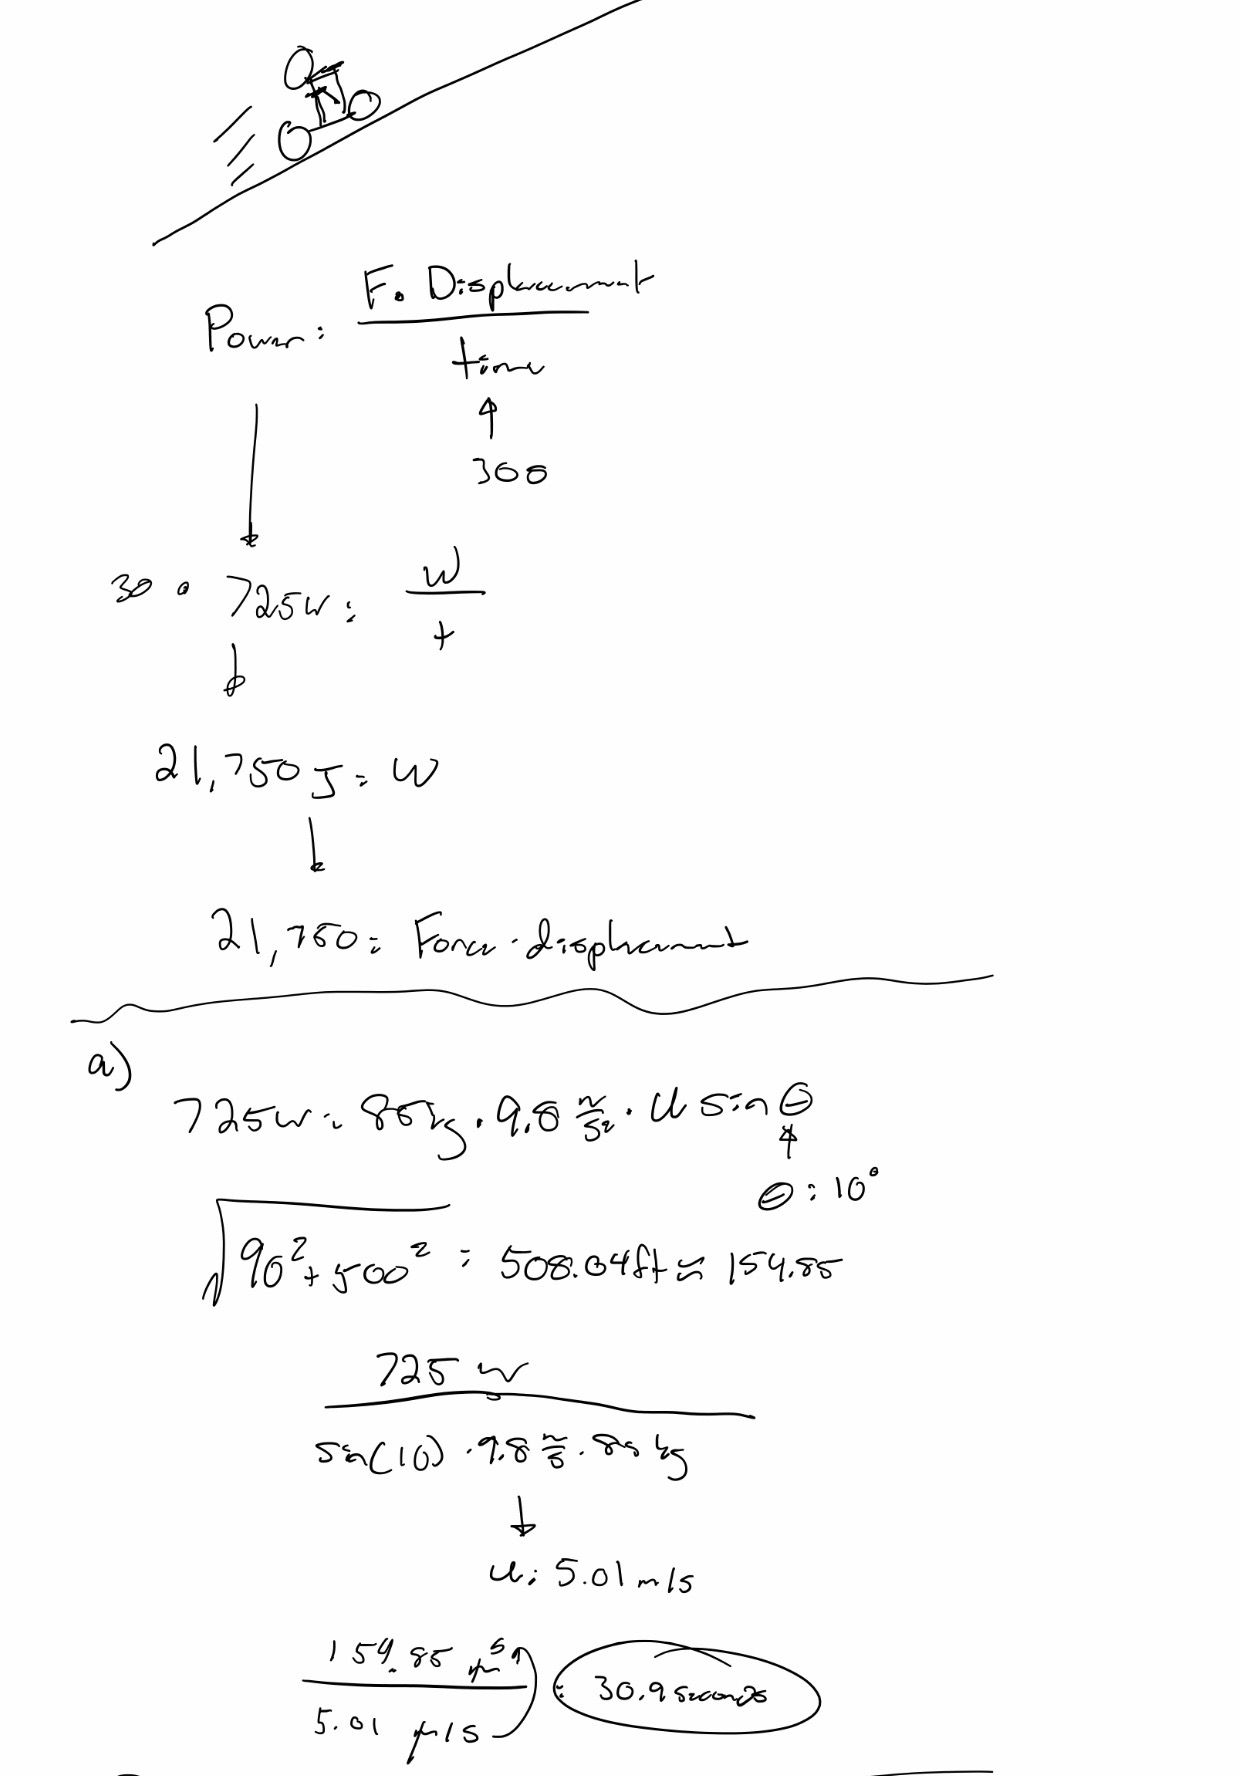 Power: F. Displacement
time
300
30 • 725W = W
t
21,750 J = W
21,750 = Force · displacement
a)
725W = 85kg · 9.8 m/s² · u sin θ
θ = 10°
√90² + 500² = 508.04ft ≈ 154.85
725 W
sin(10) · 9.8 m/s · 85 kg
u: 5.01 m/s
154.85 m s
5.01 m/s
= 30.9 seconds